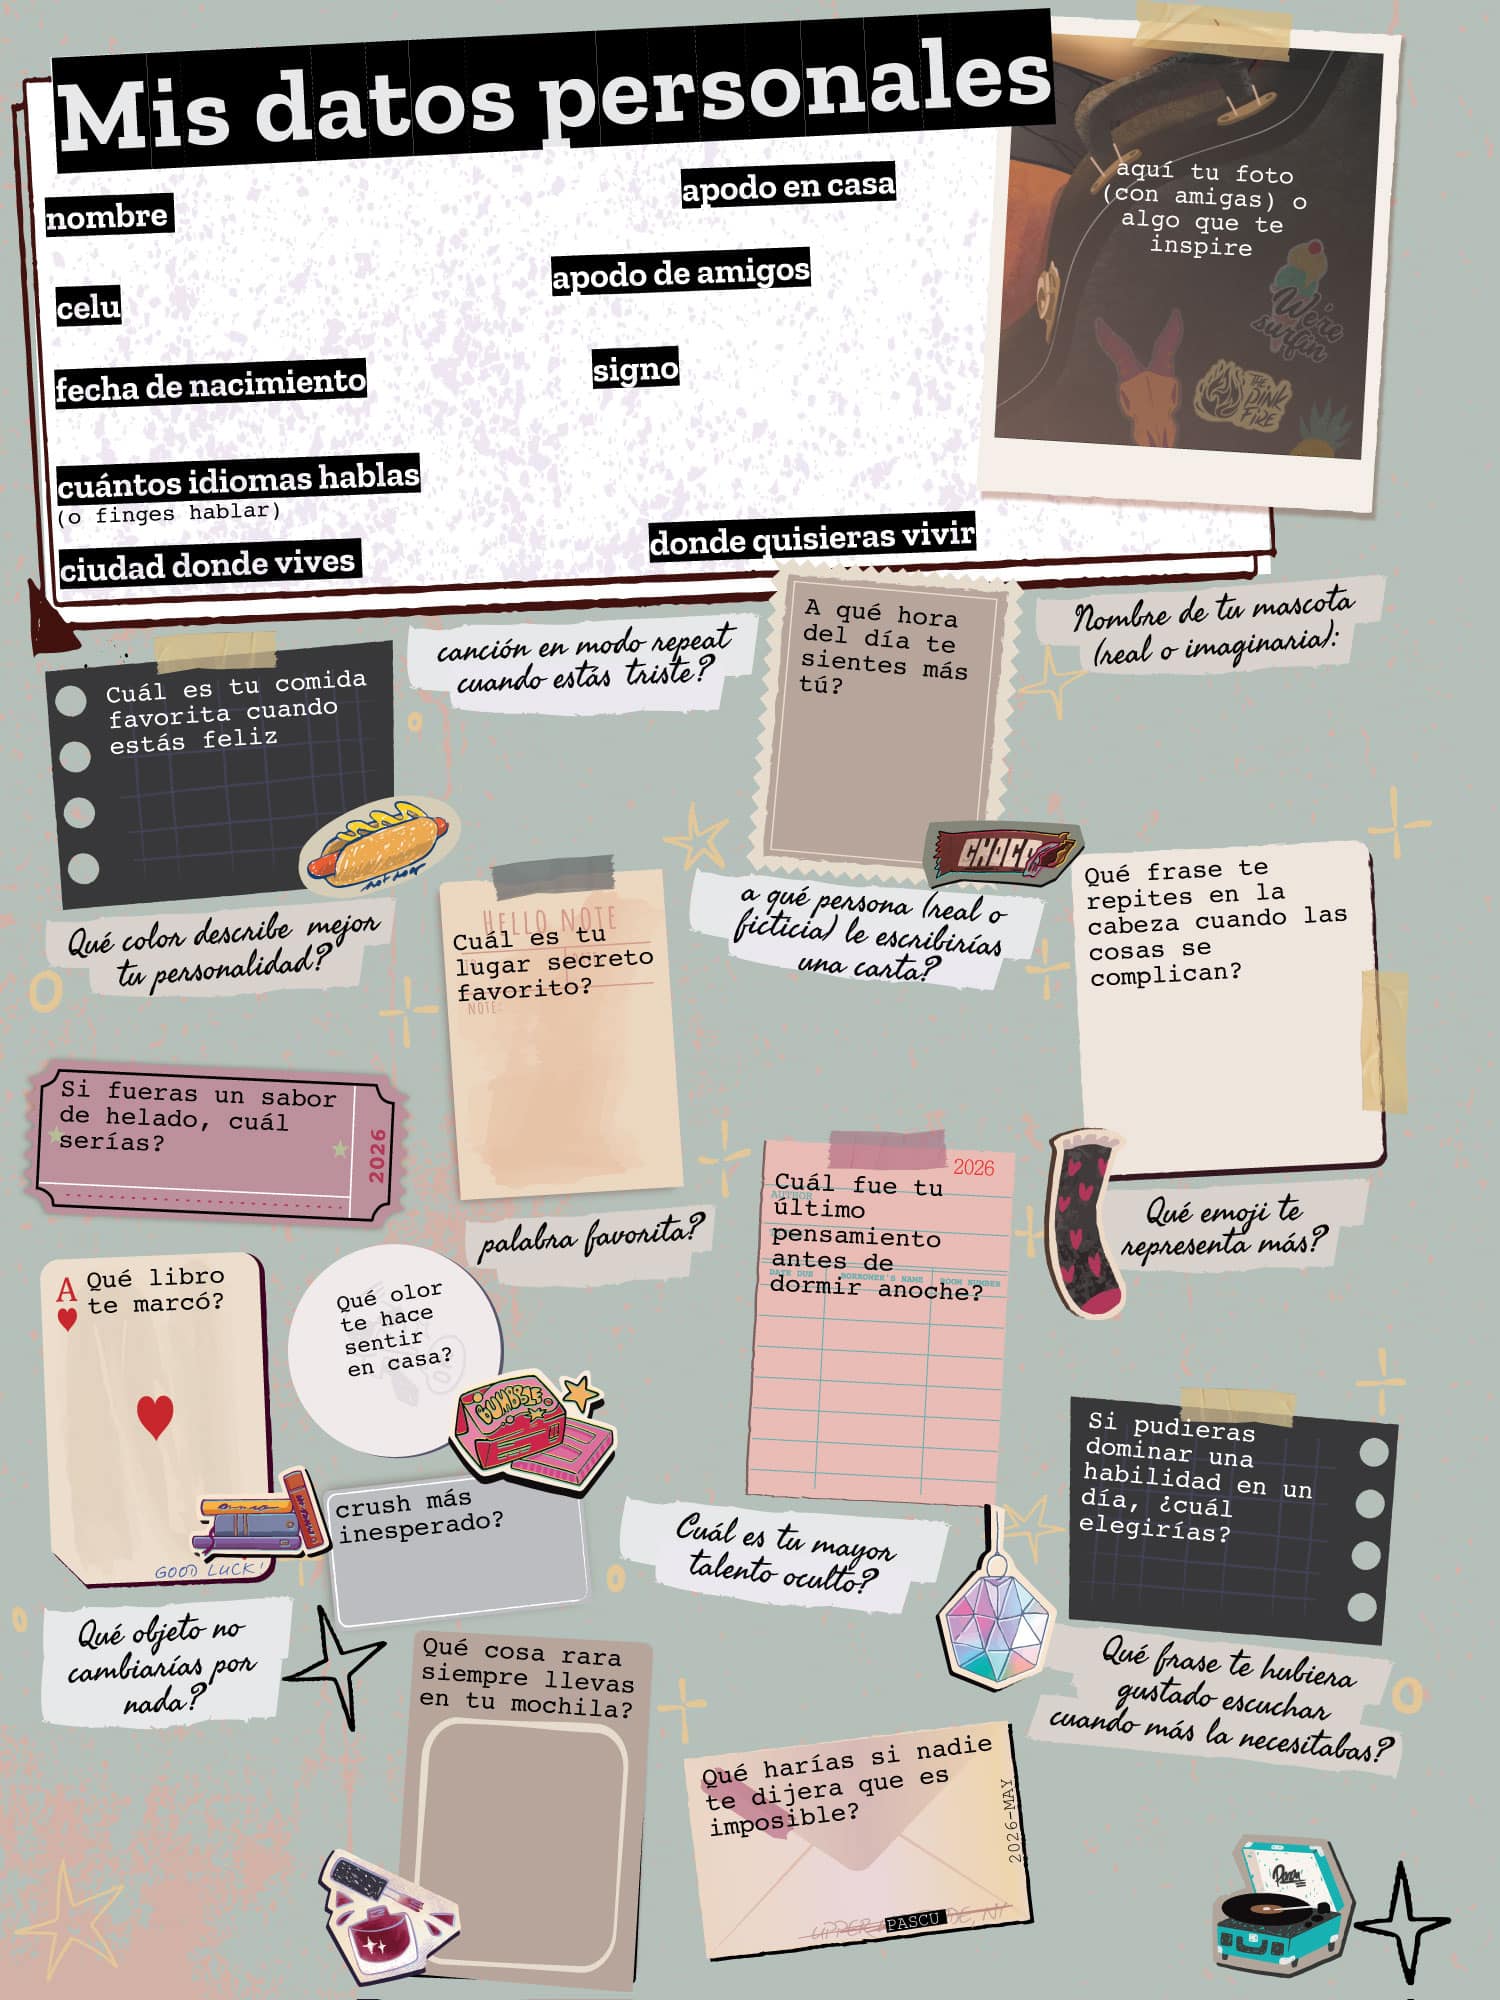 Mis datos personales
nombre
apodo en casa
celu
apodo de amigos
fecha de nacimiento
signo
cuántos idiomas hablas
(o finges hablar)
ciudad donde vives
donde quisieras vivir
aquí tu foto
(con amigas) o
algo que te
inspire
We're
surfin
THE
PINK
FIRE
Cuál es tu comida
favorita cuando
estás feliz
hot dog
canción en modo repeat
cuando estás triste?
A qué hora
del día te
sientes más
tú?
Nombre de tu mascota
(real o imaginaria):
CHOCO
Qué color describe mejor
tu personalidad?
HELLO NOTE
Cuál es tu
lugar secreto
favorito?
NOTE:
a qué persona (real o
ficticia) le escribirías
una carta?
Qué frase te
repites en la
cabeza cuando las
cosas se
complican?
Si fueras un sabor
de helado, cuál
serías?
2026
palabra favorita?
2026
Cuál fue tu
AUTHOR
último
pensamiento
antes de
DATE DUE BORROWER'S NAME ROOM NUMBER
dormir anoche?
Qué emoji te
representa más?
A
Qué libro
te marcó?
GOOD LUCK!
Qué olor
te hace
sentir
en casa?
BUMBBLE
crush más
inesperado?
Cuál es tu mayor
talento oculto?
Si pudieras
dominar una
habilidad en un
día, ¿cuál
elegirías?
Qué objeto no
cambiarías por
nada?
Qué cosa rara
siempre llevas
en tu mochila?
Qué frase te hubiera
gustado escuchar
cuando más la necesitabas?
Qué harías si nadie
te dijera que es
imposible?
2026-MAY
UPPER DE, NY
PASCU